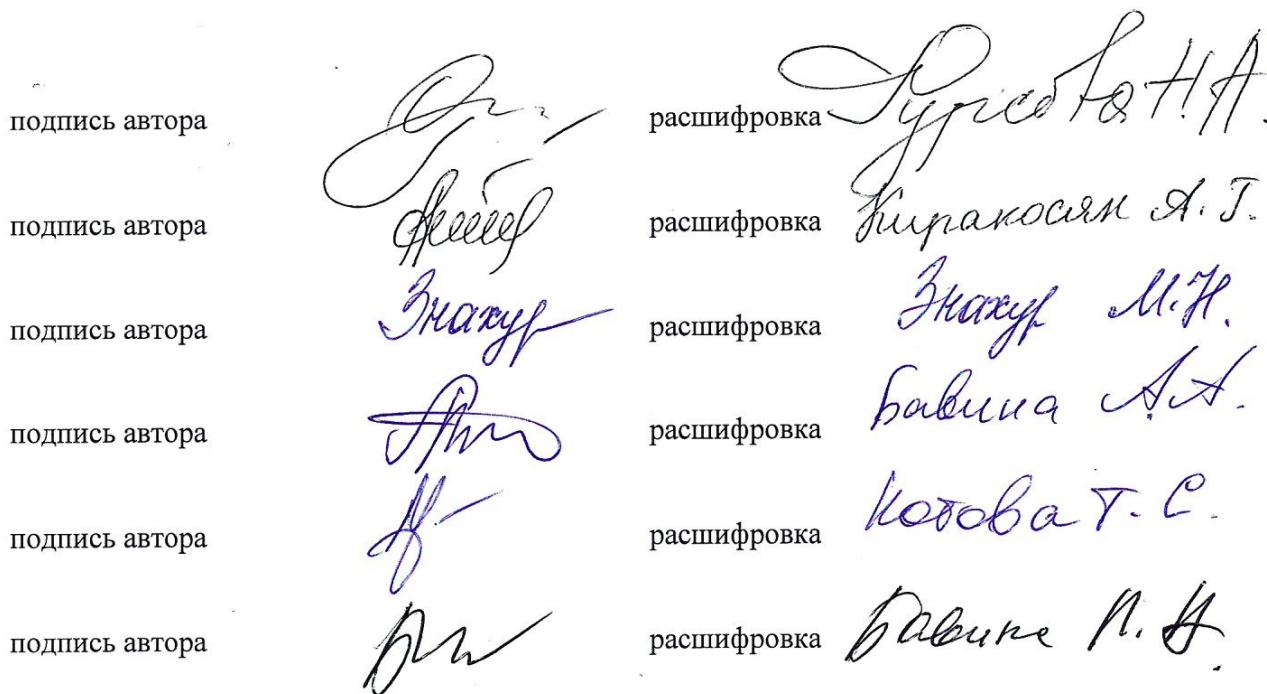 подпись автора расшифровка Фурсова Н.А.
подпись автора расшифровка Киракосян А.Г.
подпись автора Знахур расшифровка Знахур М.Н.
подпись автора расшифровка Бавина А.А.
подпись автора расшифровка Котова Т.С.
подпись автора расшифровка Бавина